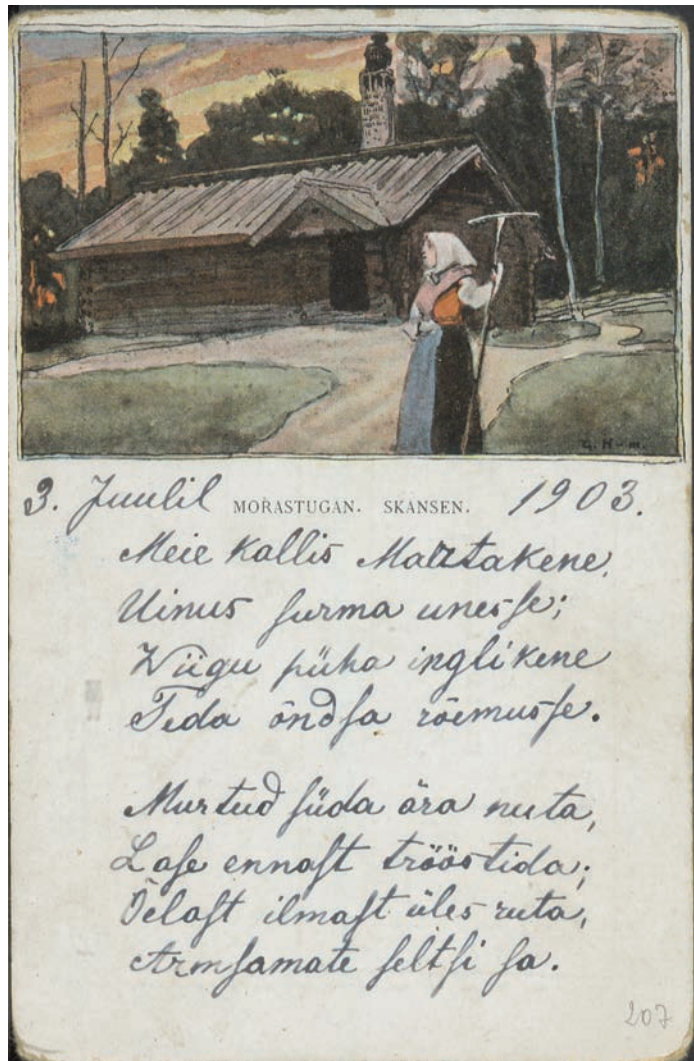 G. H-m.
3. Juulil MORASTUGAN. SKANSEN. 1903.
Meie kallis Martakene,
Uinus ſurma uneſse;
Wiigu püha inglikene
Teda õndſa rõemusſe.
Murtud ſüda ära nuta,
Laſe ennaſt trööstida;
Õelaſt ilmaſt üles ruta,
Armſamate ſeltſi ſa.
207